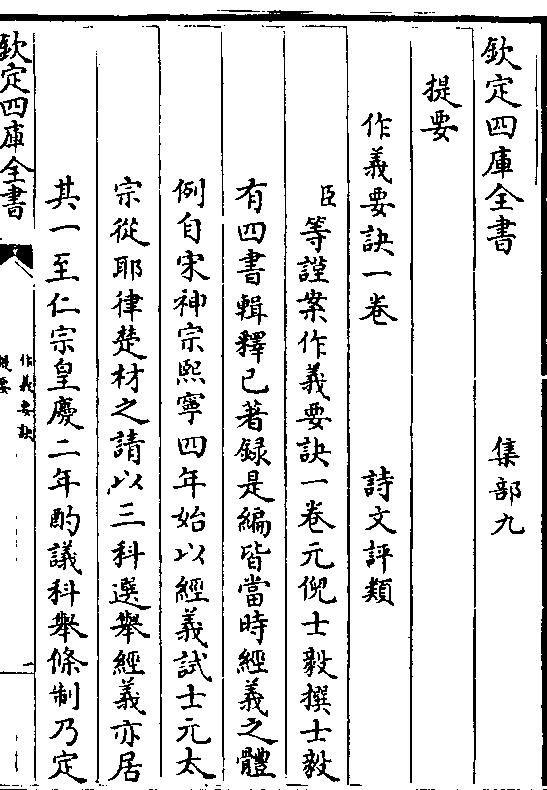 欽定四庫全書　　集部九
提要
作義要訣一卷　　詩文評類
臣等謹案作義要訣一卷元倪士毅撰士毅
有四書輯釋已著録是編皆當時經義之體
例自宋神宗熙寧四年始以經義試士元太
宗從耶律楚材之請以三科選舉經義亦居
其一至仁宗皇慶二年酌議科舉條制乃定
欽定四庫全書
作義要訣
提要
一